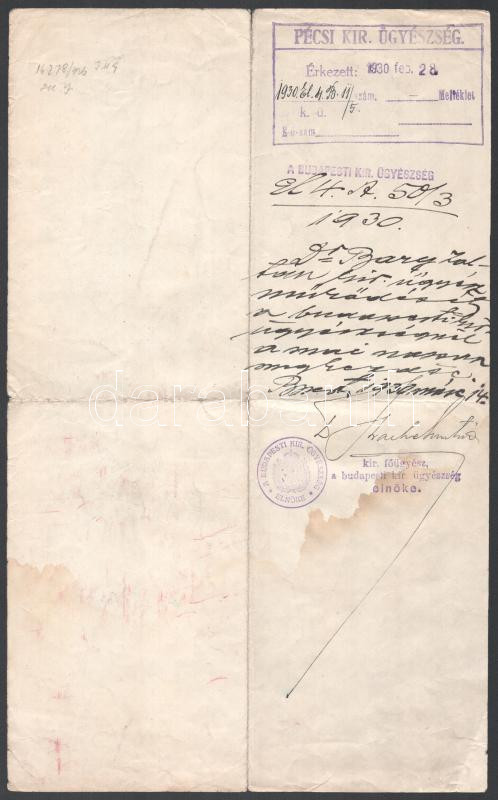 PÉCSI KIR. ÜGYÉSZSÉG.
Érkezett: 1930 feb. 28
1930. El. 4. szám. — Melléklet
k. ü. /5.
K-ü-szám
A BUDAPESTI KIR. ÜGYÉSZSÉG
El 4. A. 50/3
1930.
Dr Barcy Zol-
tán kir. ügyész
működését
a budapesti kir.
ügyészségnél
a mai napon
megkezdte.
Bpest, 1930 márc. 14.
Dr
kir. főügyész,
a budapesti kir. ügyészség
elnöke.
A BUDAPESTI KIR. ÜGYÉSZSÉG ELNÖKE
darabanth.com